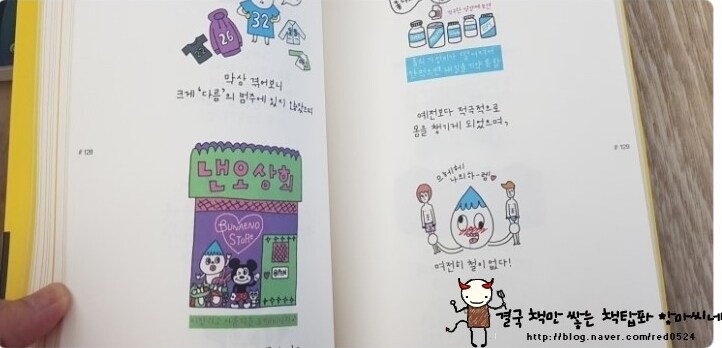 32
26
막상 겪어보니
크게 '다름'의 범주에 있지 않았으며
# 128
낸오상회
BUNAENO
STORE
예전보다 적극적으로
몸을 챙기게 되었으며,
# 129
으헤헤
나의 하-렘
여전히 철이 없다!
결국 책만 쌓는 책탑파 항마씨네
http://blog.naver.com/red0524